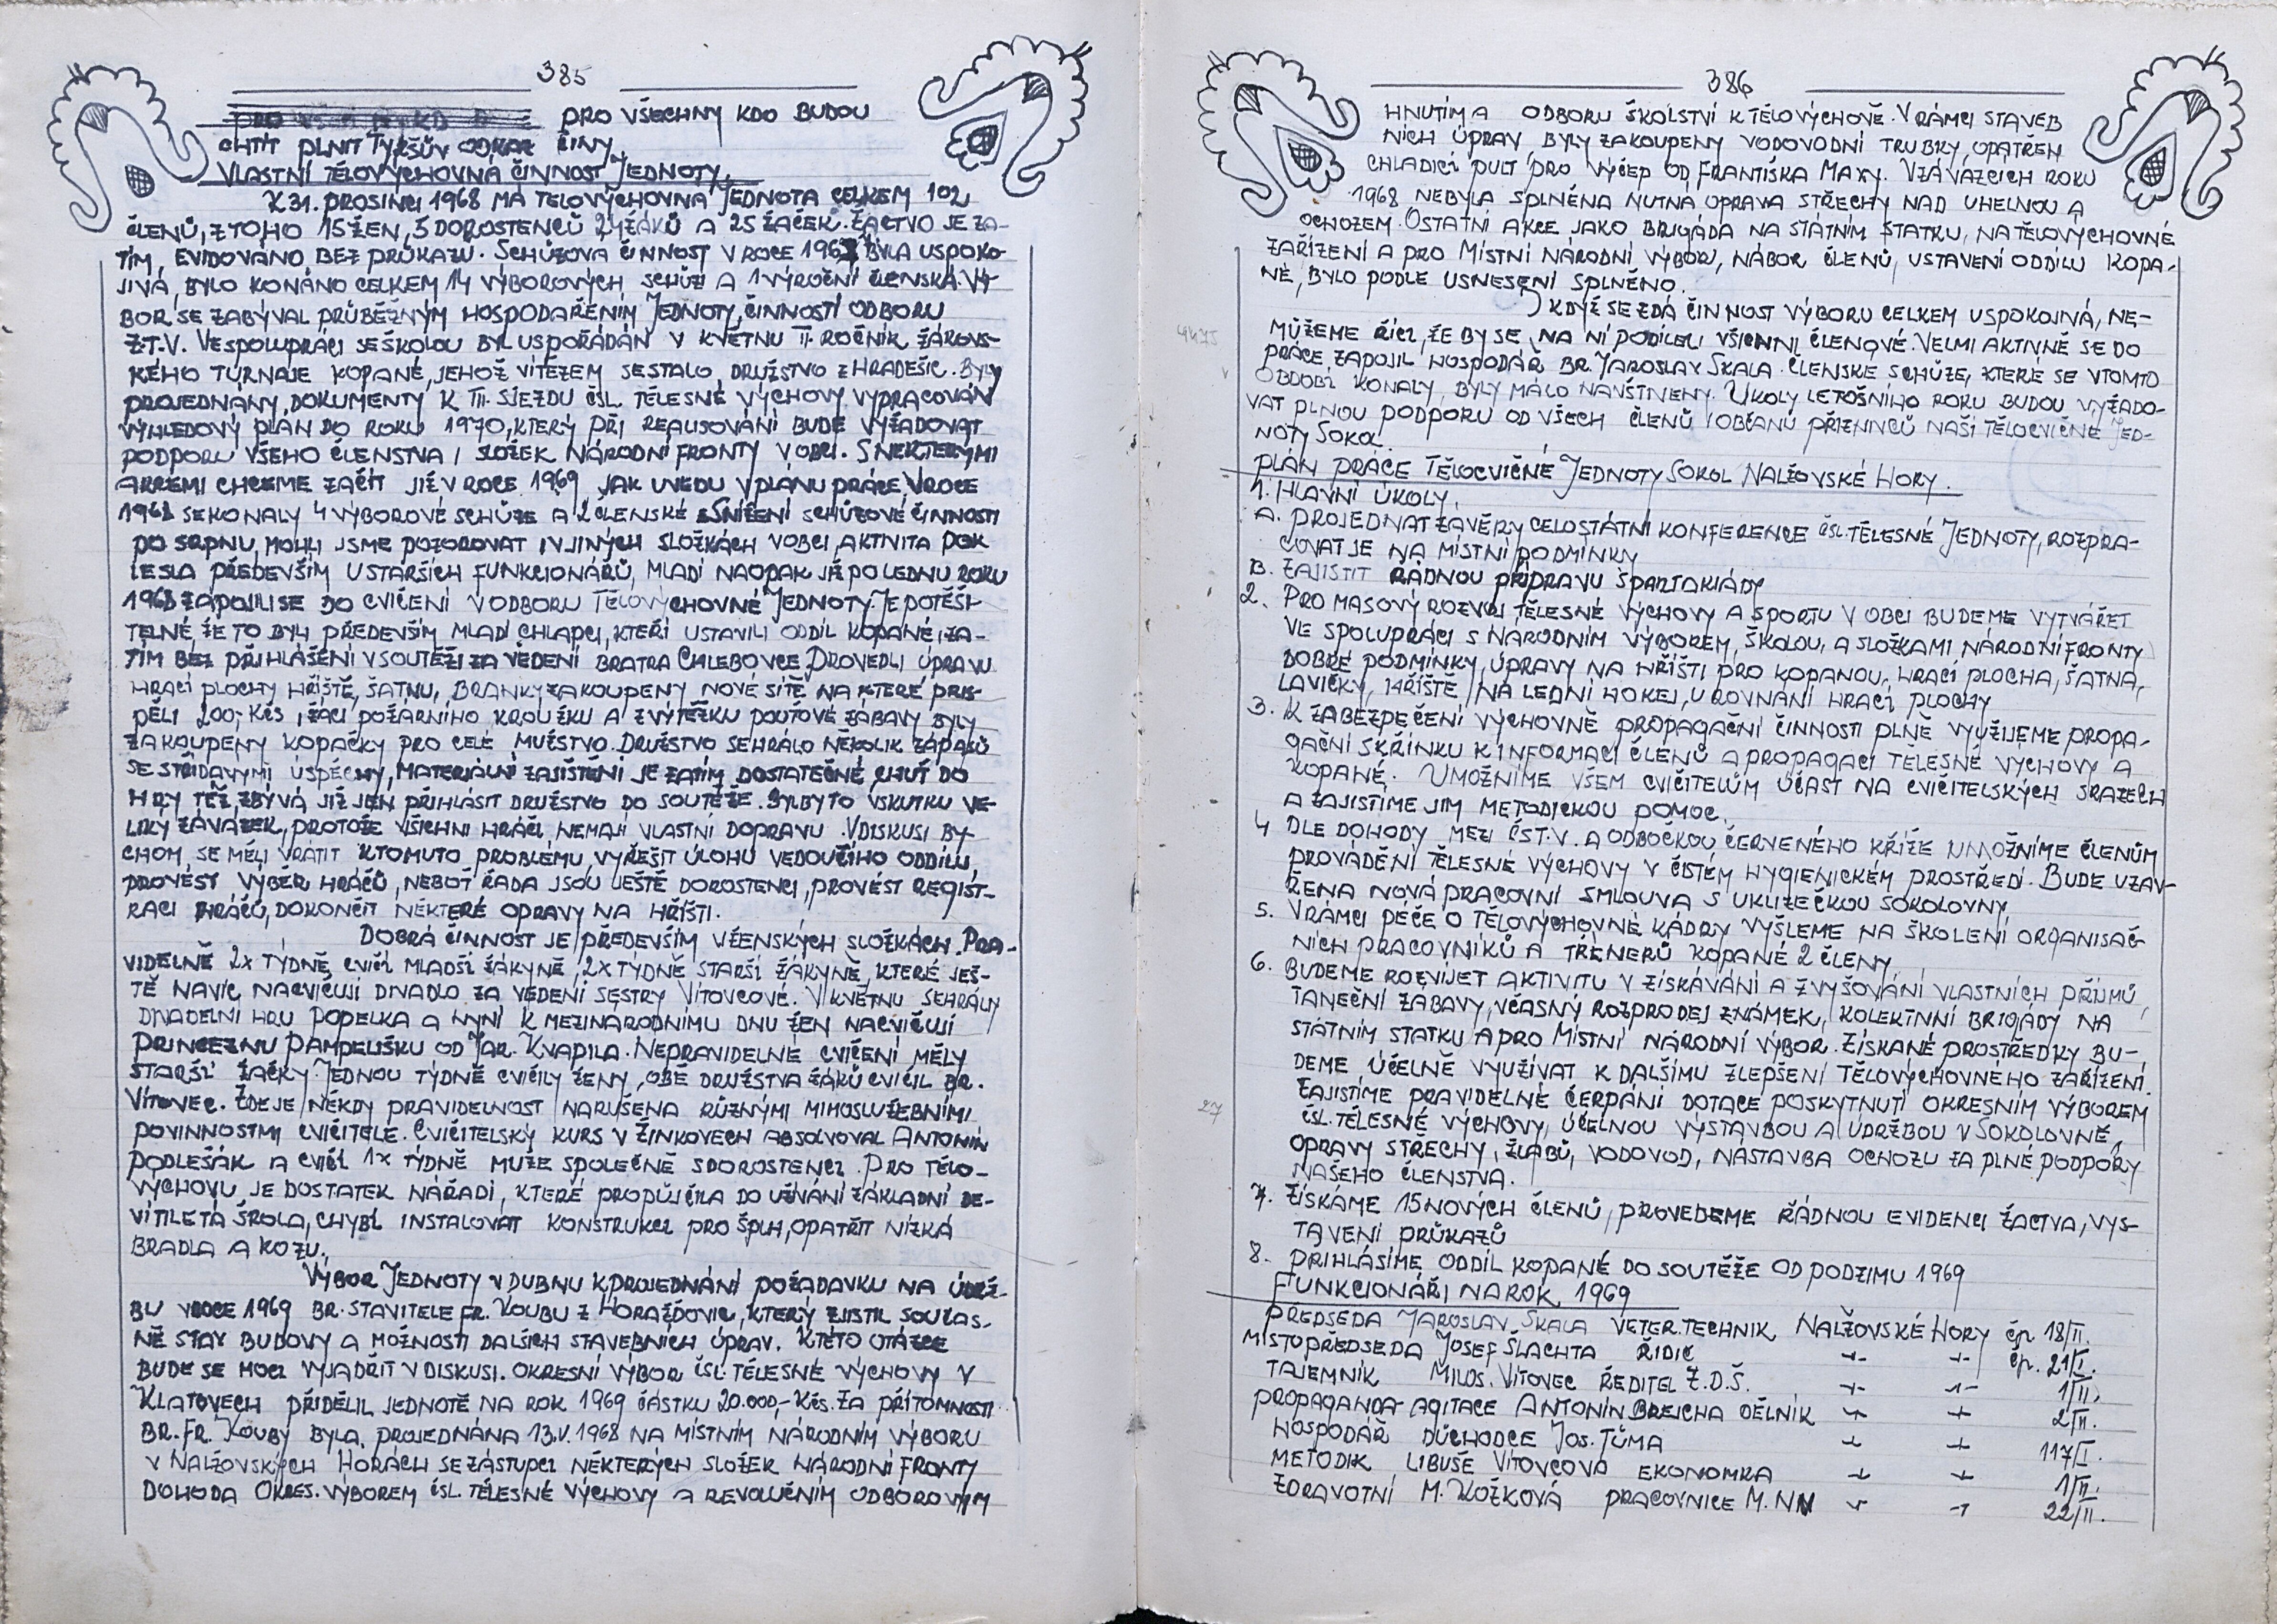 385
PRO VŠECHNY KDO BUDOU
CHTÍT PLNIT TYRŠŮV ODKAZ ČINY.
VLASTNÍ TĚLOVÝCHOVNÁ ČINNOST JEDNOTY.
K 31. PROSINCI 1968 MÁ TĚLOVÝCHOVNÁ JEDNOTA CELKEM 102
ČLENŮ, Z TOHO 15 ŽEN, 5 DOROSTENCŮ 24 ŽÁKŮ A 25 ŽAČEK. ŽACTVO JE ZA-
TÍM, EVIDOVÁNO BEZ PRŮKAZU. SCHŮZOVÁ ČINNOST V ROCE BYLA USPOKO-
JIVÁ, BYLO KONÁNO CELKEM 14 VÝBOROVÝCH SCHŮZÍ A 1 VÝROČNÍ ČLENSKÁ. VÝ-
BOR SE ZABÝVAL PRŮBĚŽNÝM HOSPODAŘENÍM JEDNOTY, ČINNOSTÍ ODBORU
Z.T.V. VE SPOLUPRÁCI SE ŠKOLOU BYL USPOŘÁDÁN V KVĚTNU II. ROČNÍK ŽÁKOVS-
KÉHO TURNAJE KOPANÉ, JEHOŽ VÍTĚZEM SE STALO DRUŽSTVO Z HRADEŠIC. BYLY
PROJEDNÁNY DOKUMENTY K III. SJEZDU ČSL. TĚLESNÉ VÝCHOVY VYPRACOVÁN
VÝHLEDOVÝ PLÁN DO ROKU 1970, KTERÝ PŘI REALISOVÁNÍ BUDE VYŽADOVAT
PODPORU VŠEHO ČLENSTVA I SLOŽEK NÁRODNÍ FRONTY V OBCI. S NĚKTERÝMI
AKCEMI CHCEME ZAČÍT JIŽ V ROCE 1969 JAK UVEDU V PLÁNU PRÁCE. V ROCE
1968 SE KONALY 4 VÝBOROVÉ SCHŮZE A 2 ČLENSKÉ SNÍŽENÍ SCHŮZOVÉ ČINNOSTI
PO SRPNU, MOHLI JSME POZOROVAT I V JINÝCH SLOŽKÁCH V OBCI, AKTIVITA POK
LESLA PŘEDEVŠÍM U STARŠÍCH FUNKCIONÁŘŮ, MLADÍ NAOPAK JIŽ PO LEDNU ROKU
1968 ZAPOJILI SE DO CVIČENÍ V ODBORU TĚLOVÝCHOVNÉ JEDNOTY. JE POTĚŠI-
TELNÉ, ŽE TO BYLI PŘEDEVŠÍM MLADÍ CHLAPCI, KTEŘÍ USTAVILI ODDÍL KOPANÉ, ZA-
TÍM BEZ PŘIHLÁŠENÍ V SOUTĚŽI ZA VEDENÍ BRATRA CHLEBOVCE. PROVEDLI ÚPRAVU
HRACÍ PLOCHY HŘIŠTĚ, ŠATNU, BRANKY ZAKOUPENY NOVÉ SÍTĚ NA KTERÉ PŘIS-
PĚLI 200,- KČS, ŽÁCI POŽÁRNÍHO KROUŽKU A Z VÝTĚŽKU POUŤOVÉ ZÁBAVY BYLY
ZAKOUPENY KOPAČKY PRO CELÉ MUŽSTVO. DRUŽSTVO SEHRÁLO NĚKOLIK ZÁPASŮ
SE STŘÍDAVÝMI ÚSPĚCHY, MATERIÁLNÍ ZAJIŠTĚNÍ JE ZATÍM DOSTATEČNÉ, CHUŤ DO
HRY TÉŽ, ZBÝVÁ JIŽ JEN PŘIHLÁSIT DRUŽSTVO DO SOUTĚŽE. BYL BY TO VSKUTKU VE-
LIKÝ ZÁVAZEK, PROTOŽE VŠICHNI HRÁČI NEMAJÍ VLASTNÍ DOPRAVU. V DISKUSI BY-
CHOM, SE MĚLI VRÁTIT K TOMUTO PROBLÉMU, VYŘEŠIT ÚLOHU VEDOUCÍHO ODDÍLU,
PROVÉST VÝBĚR HRÁČŮ, NEBOŤ ŘADA JSOU JEŠTĚ DOROSTENCI, PROVÉST REGIST-
RACI HRÁČŮ, DOKONČIT NĚKTERÉ OPRAVY NA HŘIŠTI.
DOBRÁ ČINNOST JE PŘEDEVŠÍM V ŽENSKÝCH SLOŽKÁCH. PRA-
VIDELNĚ 2X TÝDNĚ, CVIČÍ MLADŠÍ ŽÁKYNĚ, 2X TÝDNĚ STARŠÍ ŽÁKYNĚ, KTERÉ JEŠ-
TĚ NAVÍC NACVIČUJÍ DIVADLO ZA VEDENÍ SESTRY VÍTOVCOVÉ. V KVĚTNU SEHRÁLY
DIVADELNÍ HRU POPELKA A NYNÍ K MEZINÁRODNÍMU DNU ŽEN NACVIČUJÍ
PRINCEZNU PAMPELIŠKU OD JAR. KVAPILA. NEPRAVIDELNÉ CVIČENÍ MĚLY
STARŠÍ ŽAČKY. JEDNOU TÝDNĚ CVIČILY ŽENY, OBĚ DRUŽSTVA ŽÁKŮ CVIČIL BR.
VÍTOVEC. ZDE JE NĚKDY PRAVIDELNOST NARUŠENA RŮZNÝMI MIMOSLUŽEBNÍMI
POVINNOSTMI CVIČITELE. CVIČITELSKÝ KURS V ŽINKOVECH ABSOLVOVAL ANTONÍN
PODLEŠÁK A CVIČÍ 1X TÝDNĚ MUŽE SPOLEČNĚ S DOROSTENCI. PRO TĚLO-
VÝCHOVU JE DOSTATEK NÁŘADÍ, KTERÉ PROPŮJČILA DO UŽÍVÁNÍ ZÁKLADNÍ DE-
VÍTILETÁ ŠKOLA, CHYBÍ INSTALOVAT KONSTRUKCI PRO ŠPLH, OPATŘIT NÍZKÁ
BRADLA A KOZU.
VÝBOR JEDNOTY V DUBNU K PROJEDNÁNÍ POŽADAVKU NA ÚDRŽ-
BU V ROCE 1969 BR. STAVITELE FR. KOUBU Z HORAŽĎOVIC, KTERÝ ZJISTIL SOUČAS-
NĚ STAV BUDOVY A MOŽNOSTI DALŠÍCH STAVEBNÍCH ÚPRAV. K TÉTO OTÁZCE
BUDE SE MOCI VYJÁDŘIT V DISKUSI. OKRESNÍ VÝBOR ČSL. TĚLESNÉ VÝCHOVY V
KLATOVECH PŘIDĚLIL JEDNOTĚ NA ROK 1969 ČÁSTKU 20.000,- KČS. ZA PŘÍTOMNOSTI
BR. FR. KOUBY BYLA PROJEDNÁNA 13.V. 1968 NA MÍSTNÍM NÁRODNÍM VÝBORU
V NALŽOVSKÝCH HORÁCH SE ZÁSTUPCI NĚKTERÝCH SLOŽEK NÁRODNÍ FRONTY
DOHODA OKRES. VÝBOREM ČSL. TĚLESNÉ VÝCHOVY A REVOLUČNÍM ODBOROVÝM
386
HNUTÍM A ODBORU ŠKOLSTVÍ K TĚLOVÝCHOVĚ. V RÁMCI STAVEB
NÍCH ÚPRAV BYLY ZAKOUPENY VODOVODNÍ TRUBKY, OPATŘEN
CHLADICÍ PULT PRO VÝČEP OD FRANTIŠKA MAXY. V ZÁVAZCÍCH ROKU
1968 NEBYLA SPLNĚNA NUTNÁ OPRAVA STŘECHY NAD UHELNOU A
OCHOZEM. OSTATNÍ AKCE JAKO BRIGÁDA NA STÁTNÍM STATKU, NA TĚLOVÝCHOVNÉ
ZAŘÍZENÍ A PRO MÍSTNÍ NÁRODNÍ VÝBOR, NÁBOR ČLENŮ, USTAVENÍ ODDÍLU KOPA-
NÉ, BYLO PODLE USNESENÍ SPLNĚNO.
I KDYŽ SE ZDÁ ČINNOST VÝBORU CELKEM USPOKOJIVÁ, NE-
MŮŽEME ŘÍCI, ŽE BY SE NA NÍ PODÍLELI VŠICHNI ČLENOVÉ. VELMI AKTIVNĚ SE DO
PRÁCE ZAPOJIL HOSPODÁŘ BR. JAROSLAV SKALA. ČLENSKÉ SCHŮZE, KTERÉ SE V TOMTO
OBDOBÍ KONALY, BYLY MÁLO NAVŠTÍVENY. ÚKOLY LETOŠNÍHO ROKU BUDOU VYŽADO-
VAT PLNOU PODPORU OD VŠECH ČLENŮ I OBČANŮ PŘÍZNIVCŮ NAŠÍ TĚLOCVIČNÉ JED-
NOTY SOKOL.
PLÁN PRÁCE TĚLOCVIČNÉ JEDNOTY SOKOL NALŽOVSKÉ HORY.
1. HLAVNÍ ÚKOLY.
A. PROJEDNAT ZÁVĚRY CELOSTÁTNÍ KONFERENCE ČSL. TĚLESNÉ JEDNOTY, ROZPRA-
COVAT JE NA MÍSTNÍ PODMÍNKY
B. ZAJISTIT ŘÁDNOU PŘÍPRAVU SPARTAKIÁDY
2. PRO MASOVÝ ROZVOJ TĚLESNÉ VÝCHOVY A SPORTU V OBCI BUDEME VYTVÁŘET
VE SPOLUPRÁCI S NÁRODNÍM VÝBOREM, ŠKOLOU, A SLOŽKAMI NÁRODNÍ FRONTY
DOBRÉ PODMÍNKY, ÚPRAVY NA HŘIŠTI PRO KOPANOU, HRACÍ PLOCHA, ŠATNA,
LAVIČKY, HŘIŠTĚ NA LEDNÍ HOKEJ, UROVNÁNÍ HRACÍ PLOCHY
3. K ZABEZPEČENÍ VÝCHOVNĚ PROPAGAČNÍ ČINNOSTI PLNĚ VYUŽIJEME PROPA-
GAČNÍ SKŘÍŇKU K INFORMACI ČLENŮ A PROPAGACI TĚLESNÉ VÝCHOVY A
KOPANÉ. UMOŽNÍME VŠEM CVIČITELŮM ÚČAST NA CVIČITELSKÝCH SRAZECH
A ZAJISTÍME JIM METODICKOU POMOC.
4 DLE DOHODY MEZI ČST.V. A ODBOČKOU ČERVENÉHO KŘÍŽE UMOŽNÍME ČLENŮM
PROVÁDĚNÍ TĚLESNÉ VÝCHOVY V ČISTÉM HYGIENICKÉM PROSTŘEDÍ. BUDE UZAV-
ŘENA NOVÁ PRACOVNÍ SMLOUVA S UKLÍZEČKOU SOKOLOVNY
5. V RÁMCI PÉČE O TĚLOVÝCHOVNÉ KÁDRY VYŠLEME NA ŠKOLENÍ ORGANISAČ
NÍCH PRACOVNÍKŮ A TRENÉRŮ KOPANÉ 2 ČLENY
6. BUDEME ROZVÍJET AKTIVITU V ZÍSKÁVÁNÍ A ZVYŠOVÁNÍ VLASTNÍCH PŘÍJMŮ,
TANEČNÍ ZÁBAVY, VČASNÝ ROZPRODEJ ZNÁMEK, KOLEKTIVNÍ BRIGÁDY NA
STÁTNÍM STATKU A PRO MÍSTNÍ NÁRODNÍ VÝBOR. ZÍSKANÉ PROSTŘEDKY BU-
DEME ÚČELNĚ VYUŽÍVAT K DALŠÍMU ZLEPŠENÍ TĚLOVÝCHOVNÉHO ZAŘÍZENÍ.
ZAJISTÍME PRAVIDELNÉ ČERPÁNÍ DOTACE POSKYTNUTÍ OKRESNÍM VÝBOREM
ČSL. TĚLESNÉ VÝCHOVY, ÚČELNOU VÝSTAVBOU A ÚDRŽBOU V SOKOLOVNĚ,
OPRAVY STŘECHY, ŽLABŮ, VODOVOD, NÁSTAVBA OCHOZU ZA PLNÉ PODPORY
NAŠEHO ČLENSTVA.
7. ZÍSKÁME 15 NOVÝCH ČLENŮ, PROVEDEME ŘÁDNOU EVIDENCI ŽACTVA, VYS-
TAVENÍ PRŮKAZŮ
8. PŘIHLÁSÍME ODDÍL KOPANÉ DO SOUTĚŽE OD PODZIMU 1969
FUNKCIONÁŘI NA ROK 1969
PŘEDSEDA JAROSLAV SKALA VETER. TECHNIK NALŽOVSKÉ HORY čp 18/II.
MÍSTOPŘEDSEDA JOSEF ŠLACHTA ŘIDIČ -"- -"- čp. 21/I.
TAJEMNÍK MILOS. VÍTOVEC ŘEDITEL Z.D.Š. -"- -"- 1/II.
PROPAGANDA-AGITACE ANTONÍN BREJCHA DĚLNÍK -"- -"- 2/II.
HOSPODÁŘ DŮCHODCE JOS. TŮMA -"- -"- 117/I.
METODIK LIBUŠE VÍTOVCOVÁ EKONOMKA -"- -"- 1/II.
ZDRAVOTNÍ M. KOŽKOVÁ PRACOVNICE M.NV -"- -"- 22/II.
27